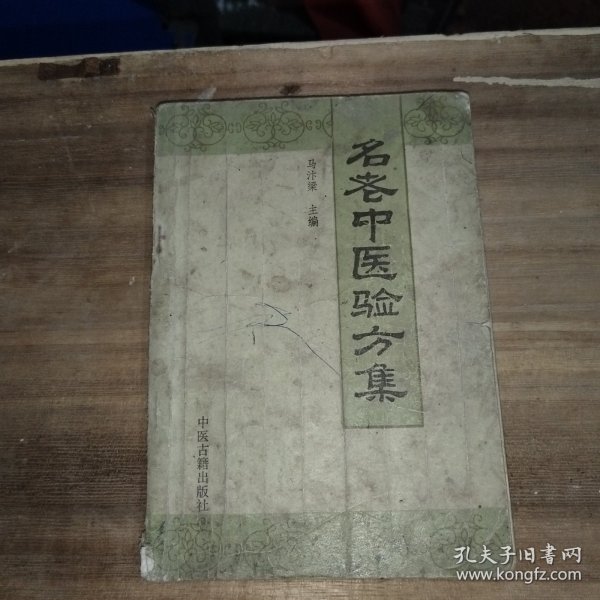 名老中医验方集
马汴梁 主编
中医古籍出版社
孔夫子旧书网
www.kongfz.com